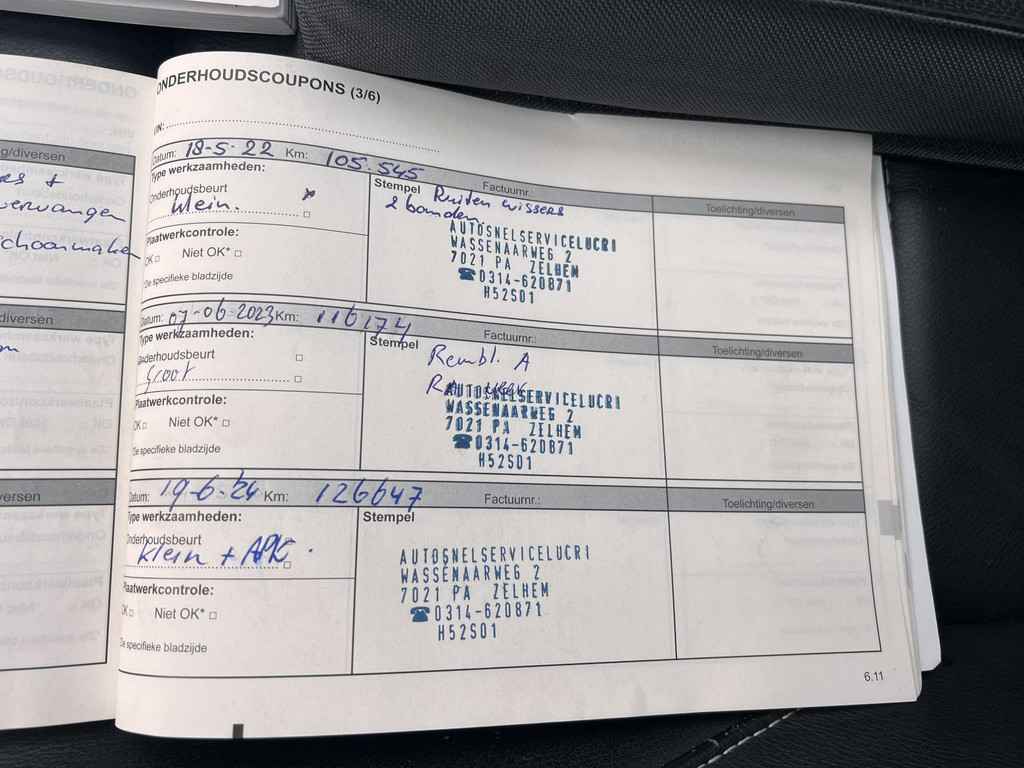 ONDERHOUDSCOUPONS (3/6)
VIN:
Datum: 18-5-22 Km: 105.545
Type werkzaamheden:
Onderhoudsbeurt
klein.
Plaatwerkcontrole:
OK □ Niet OK* □
*Zie specifieke bladzijde
Stempel Factuurnr.:
Ruiten wissers
2 banden.
AUTOSNELSERVICELUCRI
WASSENAARWEG 2
7021 PA ZELHEM
☎0314-620871
H52S01
Toelichting/diversen
Datum: 07-06-2023 Km: 116174
Type werkzaamheden:
Onderhoudsbeurt □
Groot □
Plaatwerkcontrole:
OK □ Niet OK* □
*Zie specifieke bladzijde
Stempel Factuurnr.:
Rembl. A
AUTOSNELSERVICELUCRI
WASSENAARWEG 2
7021 PA ZELHEM
☎0314-620871
H52S01
Toelichting/diversen
Datum: 19-6-24 Km: 126647
Type werkzaamheden:
Onderhoudsbeurt
klein + APK.
Plaatwerkcontrole:
OK □ Niet OK* □
*Zie specifieke bladzijde
Stempel Factuurnr.:
AUTOSNELSERVICELUCRI
WASSENAARWEG 2
7021 PA ZELHEM
☎0314-620871
H52S01
Toelichting/diversen
6.11
ng/diversen
vervangen
schoonmaken
diversen
versen